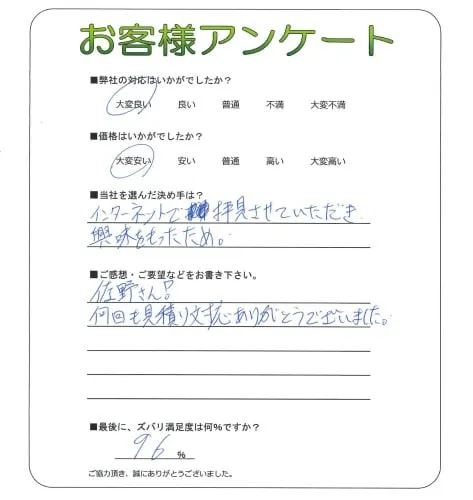 お客様アンケート
■弊社の対応はいかがでしたか?
大変良い 良い 普通 不満 大変不満
■価格はいかがでしたか?
大変安い 安い 普通 高い 大変高い
■当社を選んだ決め手は?
インターネットで拝見させていただき
興味をもったため。
■ご感想・ご要望などをお書き下さい。
佐野さん!
何回も見積り対応ありがとうございました。
■最後に、ズバリ満足度は何%ですか?
96 %
ご協力頂き、誠にありがとうございました。